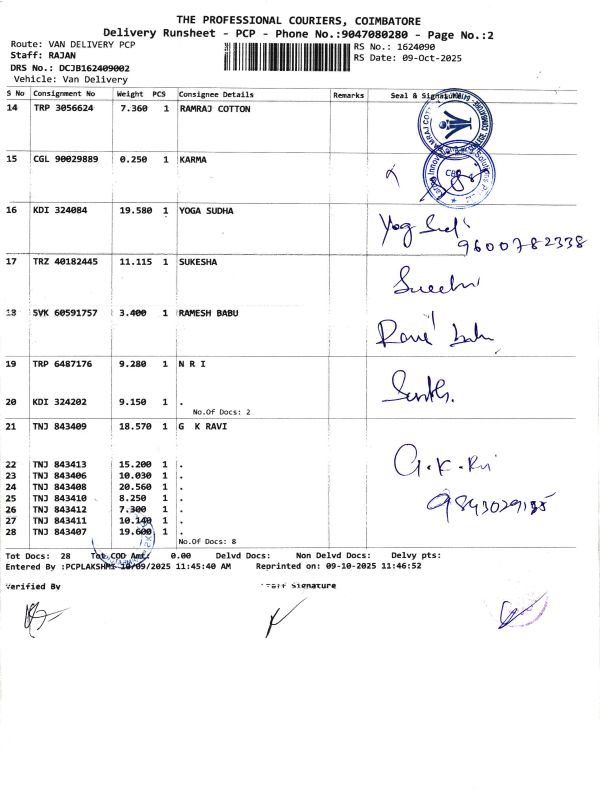 THE PROFESSIONAL COURIERS, COIMBATORE
Delivery Runsheet - PCP - Phone No.:9047080280 - Page No.:2
Route: VAN DELIVERY PCP RS No.: 1624090
Staff: RAJAN RS Date: 09-Oct-2025
DRS No.: DCJB162409002
Vehicle: Van Delivery
S No Consignment No Weight PCS Consignee Details Remarks Seal & Signature
14 TRP 3056624 7.360 1 RAMRAJ COTTON
15 CGL 90029889 0.250 1 KARMA
16 KDI 324084 19.580 1 YOGA SUDHA
9600782338
17 TRZ 40182445 11.115 1 SUKESHA
18 SVK 60591757 3.400 1 RAMESH BABU
19 TRP 6487176 9.280 1 N R I
20 KDI 324202 9.150 1 .
No.Of Docs: 2
21 TNJ 843409 18.570 1 G K RAVI
22 TNJ 843413 15.200 1 .
23 TNJ 843406 10.030 1 .
24 TNJ 843408 20.560 1 .
25 TNJ 843410 8.250 1 .
26 TNJ 843412 7.300 1 .
27 TNJ 843411 10.140 1 .
28 TNJ 843407 19.600 1 .
No.Of Docs: 8
Tot Docs: 28 Tot COD Amt: 0.00 Delvd Docs: Non Delvd Docs: Delvy pts:
Entered By :PCPLAKSHMI 10/09/2025 11:45:40 AM Reprinted on: 09-10-2025 11:46:52
Verified By Staff Signature